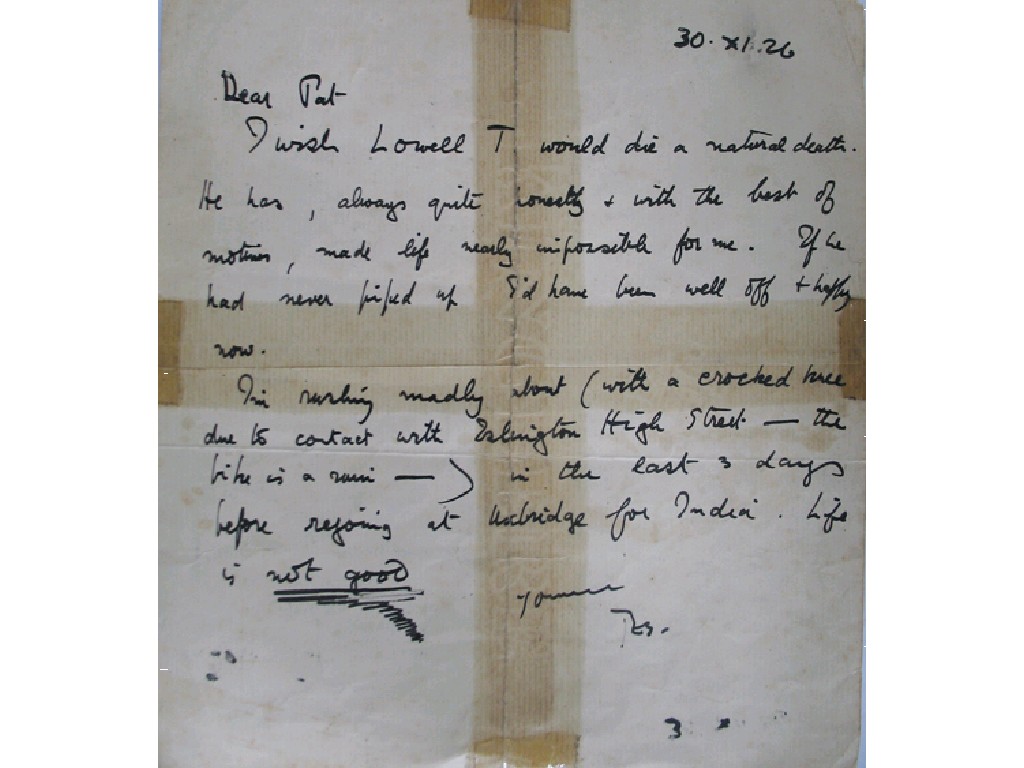 30. XI. 26
Dear Pat
I wish Lowell T would die a natural death.
He has, always quite honestly + with the best of
motives, made life nearly impossible for me. If he
had never piped up I'd have been well off + happy
now.
I'm rushing madly about (with a crocked knee
due to contact with Islington High Street — the
bike is a ruin —) in the last 3 days
before rejoining at Uxbridge for India. Life
is not good
Yours
3